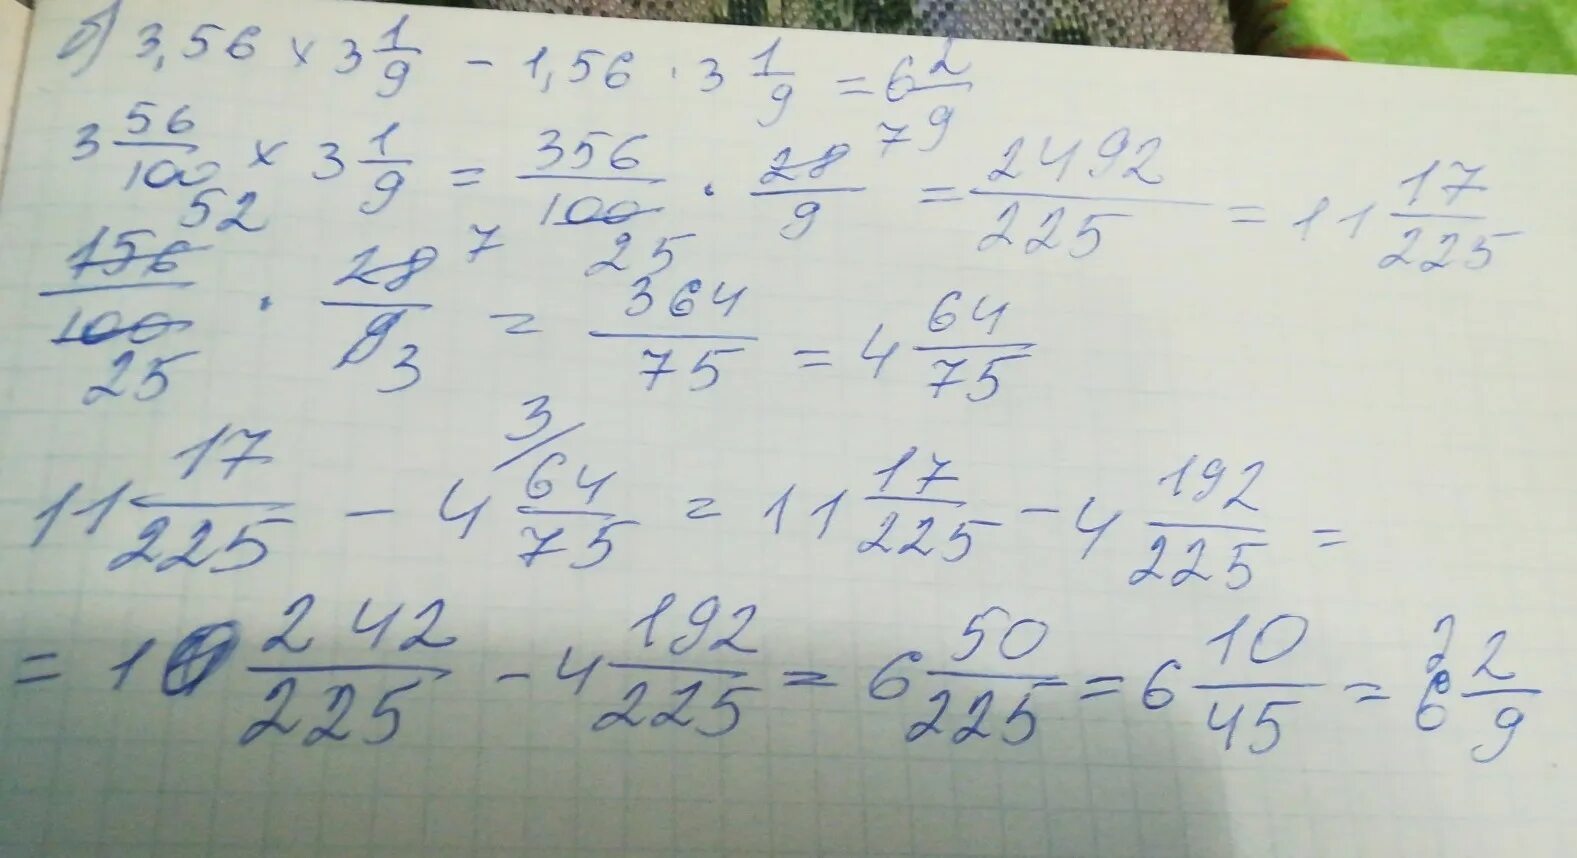 б) 3,56 × 3 1/9 − 1,56 · 3 1/9 = 6 2/9
3 56/100 × 3 1/9 = 356/100 · 28/9 = 2492/225 = 11 17/225
25 7
156/100 · 28/9 = 364/75 = 4 64/75
52 25 7 3
11 17/225 − 4 64/75 = 11 17/225 − 4 192/225 =
3/
= 10 242/225 − 4 192/225 = 6 50/225 = 6 10/45 = 6 2/9